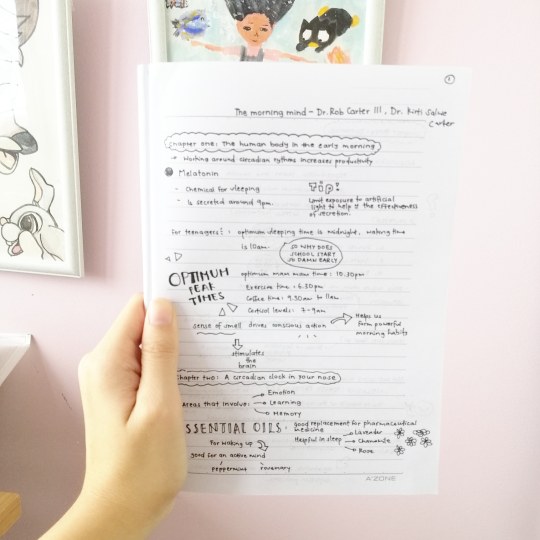 1
The morning mind - Dr. Rob Carter III , Dr. Kirti Salwe
Carter
Chapter one: The human body in the early morning
Working around circadian rythms increases productivity
Melatonin
- Chemical for sleeping
- Is secreted around 9pm.
Tip!
Limit exposure to artificial
light to help the effectiveness
of secretion.
for teenagers! : optimum sleeping time is midnight, waking time
is 10am.
SO WHY DOES
SCHOOL START
SO DAMN EARLY
OPTIMUM
PEAK
TIMES
optimum time : 10.30pm
Exercise time : 6.30pm
Coffee time : 9.30am to 11am
Critical levels : 7-9am
sense of smell drives conscious action
Helps us
form powerful
morning habits
stimulates
the
brain
Chapter two: A circadian clock in your nose
Areas that involve:
Emotion
Learning
Memory
ESSENTIAL OILS -
Good replacement for pharmaceutical
medicine
Helpful in sleep
Lavender
Chamomile
Rose
For waking up
good for an active mind
peppermint rosemary
A'ZONE